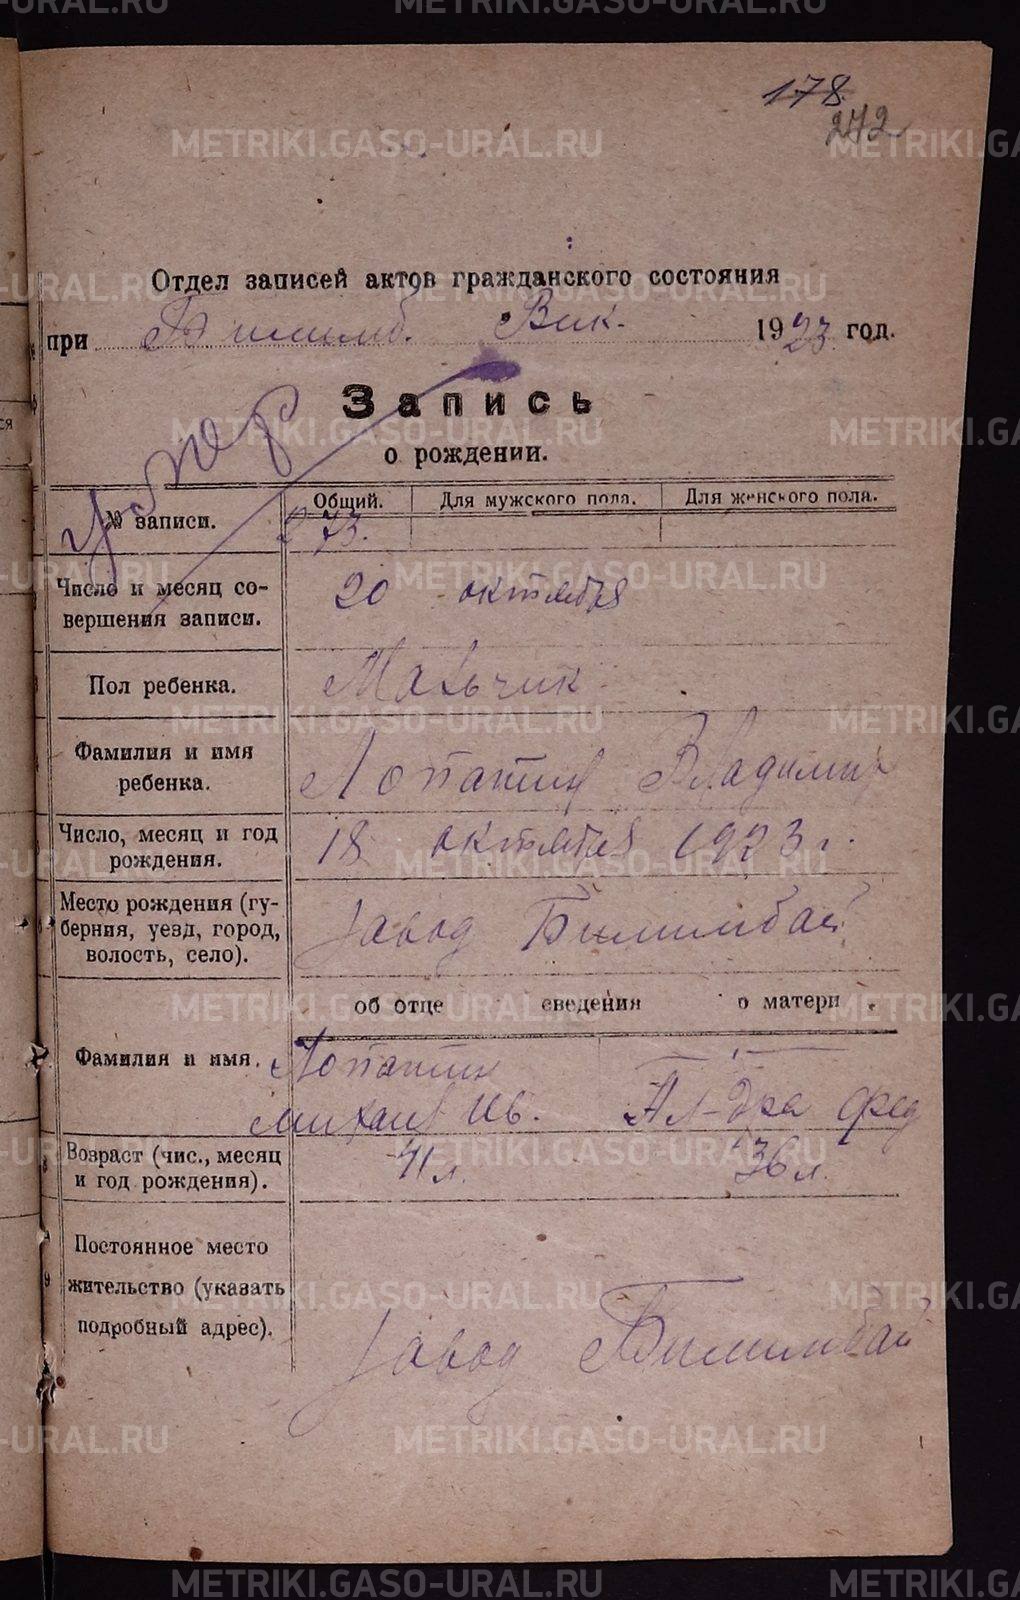 178.
272
Отдел записей актов гражданского состояния
при Билимб. Вик. 1923 год.
умер
Запись
о рождении.
Общий. Для мужского пола. Для женского пола.
№ записи. 273.
Число и месяц со-
вершения записи. 20 октября
Пол ребенка. Мальчик
Фамилия и имя
ребенка. Лопатин Владимир
Число, месяц и год
рождения. 18 октября 1923 г.
Место рождения (гу-
берния, уезд, город,
волость, село). завод Билимбай
об отце сведения о матери
Фамилия и имя. Лопатин — " —
Михаил Ив. Ал-дра Фед
Возраст (чис., месяц
и год рождения). 41 л. 36 л.
Постоянное место
жительство (указать
подробный адрес). завод Билимбай
METRIKI.GASO-URAL.RU